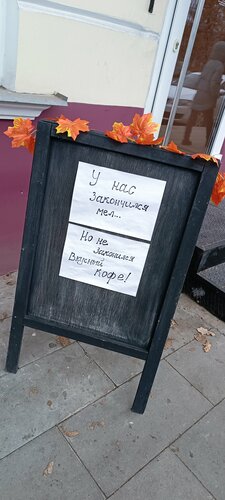 У нас
закончился
мел...
Но не
закончился
вкусный
кофе!